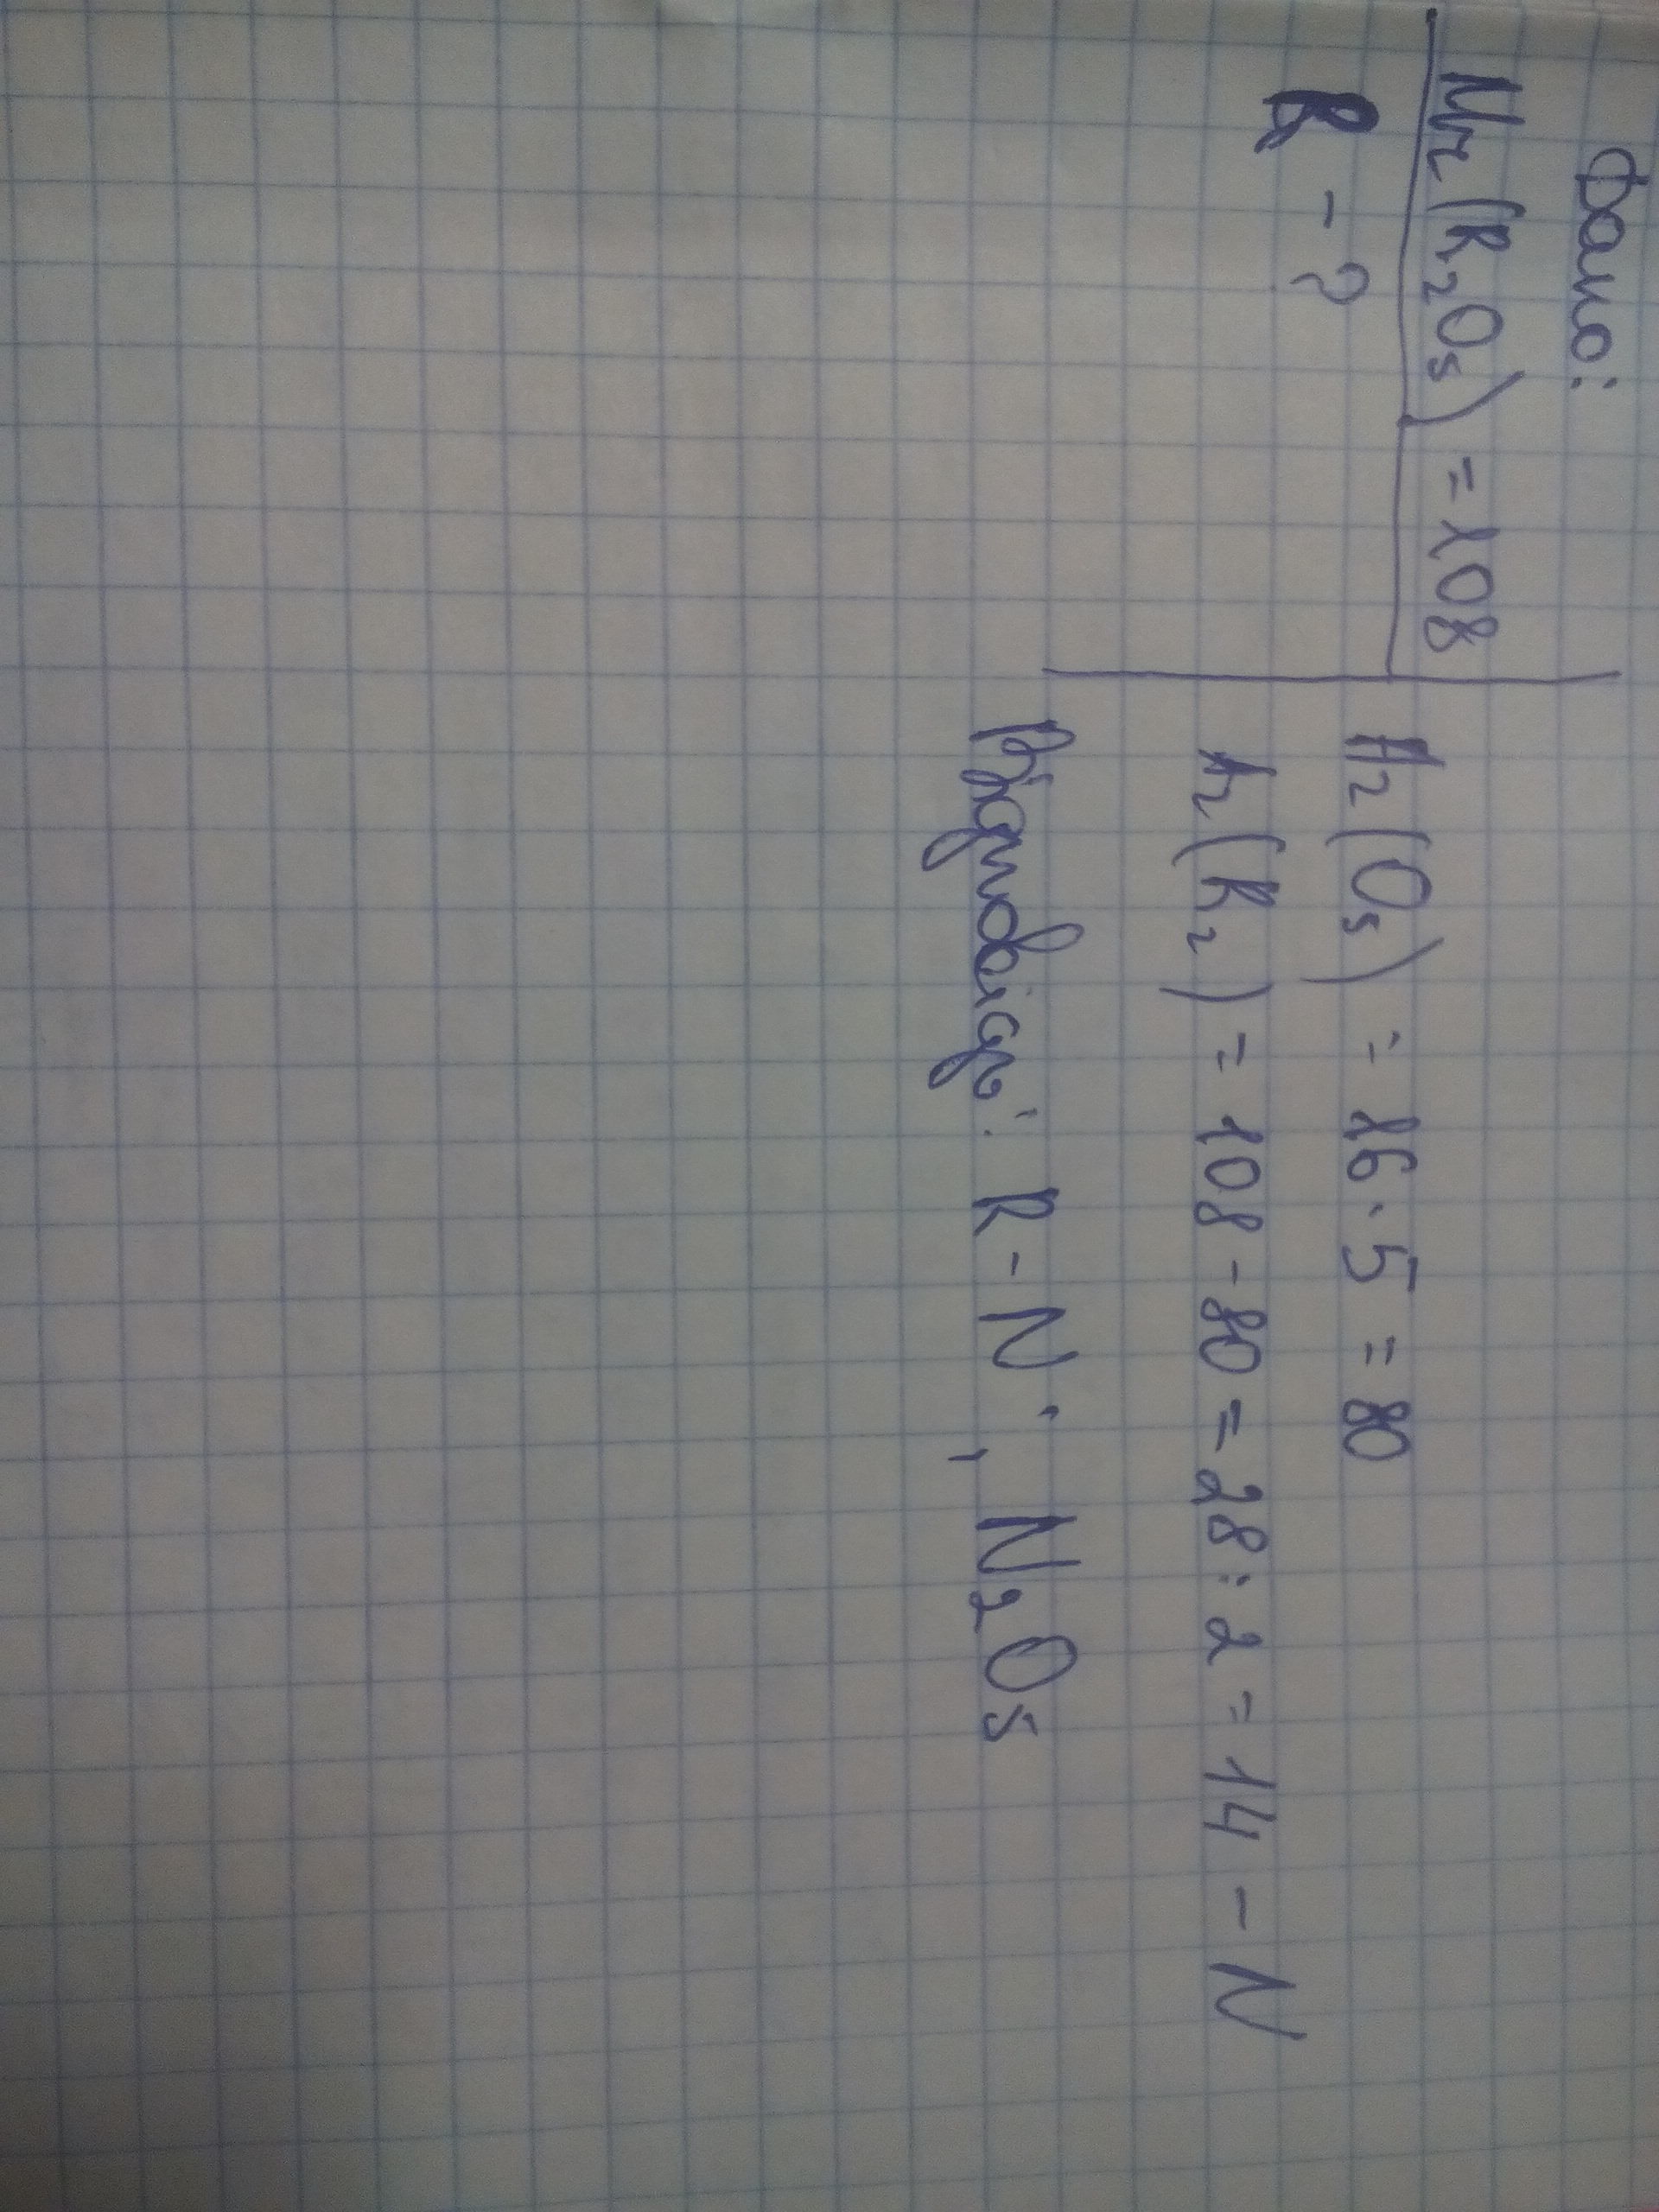 Дано:
Mr(R₂O₅) = 108
R - ?
Ar(O₅) = 16 · 5 = 80
Ar(R₂) = 108 - 80 = 28 : 2 = 14 - N
Відповідь: R - N ; N₂O₅